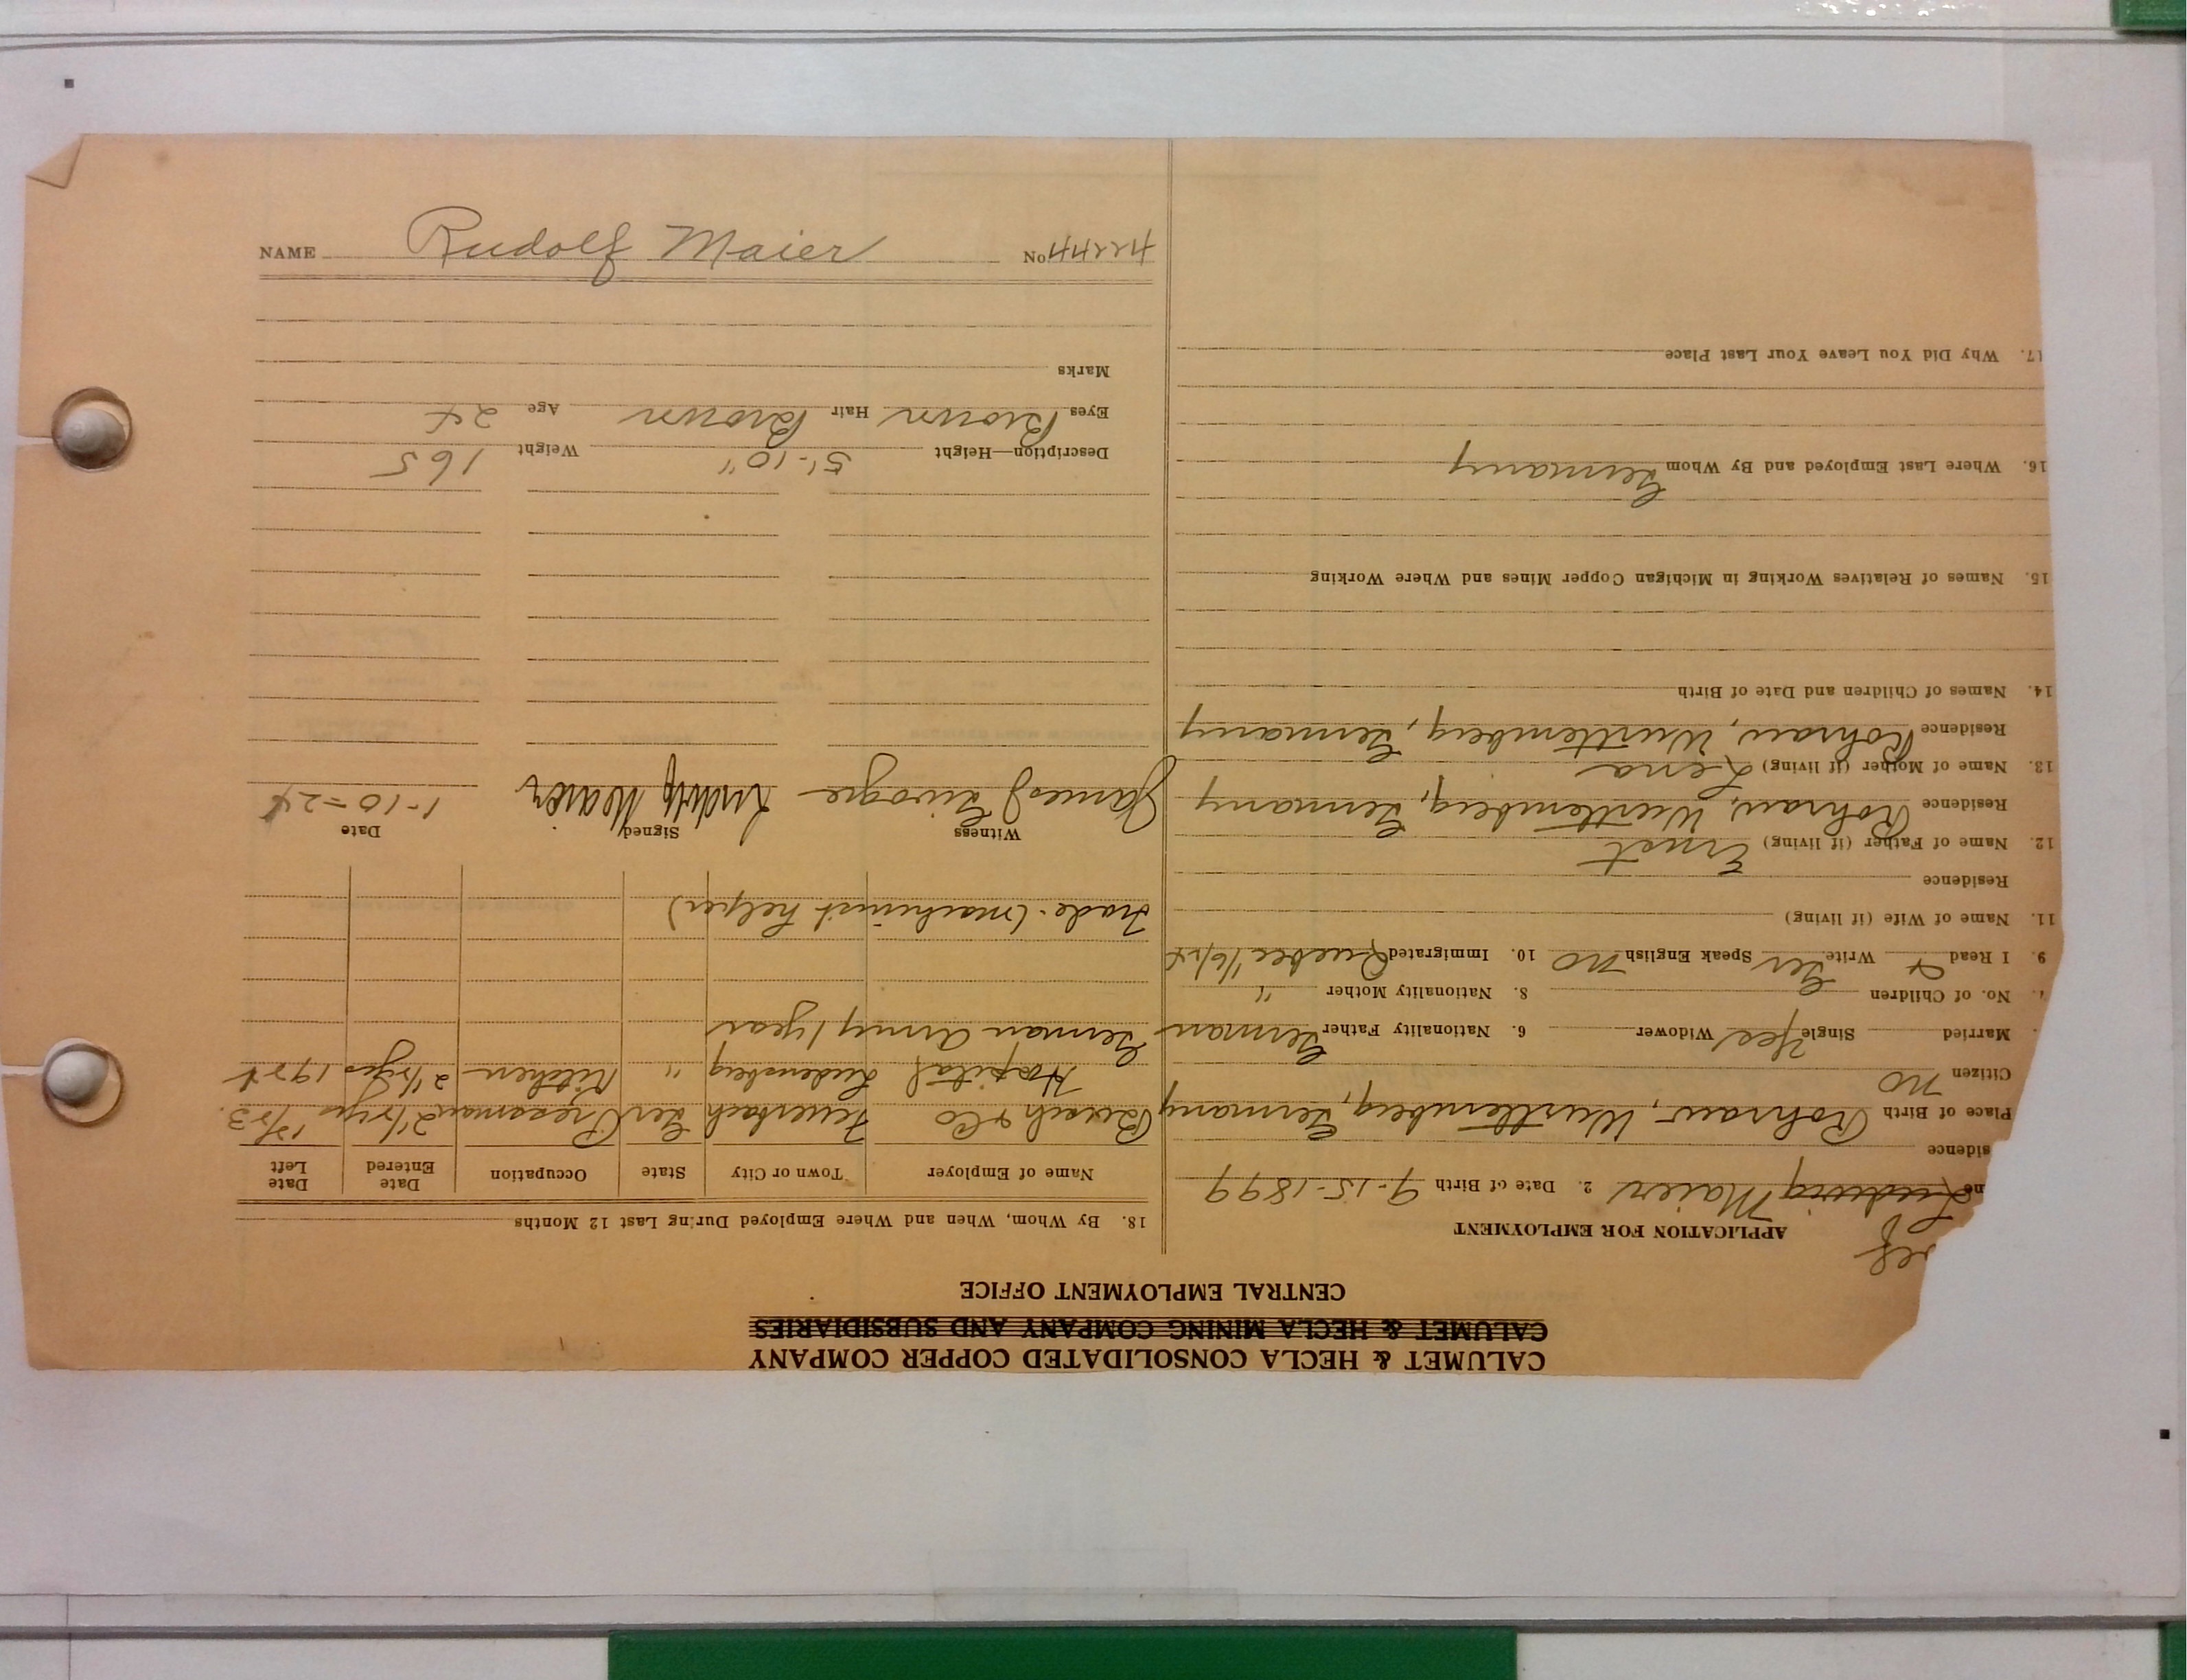 CALUMET & HECLA CONSOLIDATED COPPER COMPANY
CALUMET & HECLA MINING COMPANY AND SUBSIDIARIES
CENTRAL EMPLOYMENT OFFICE
APPLICATION FOR EMPLOYMENT
Ludwig Maier 2. Date of Birth 9-15-1899
sidence
Place of Birth Rohrau, Wurttemberg, Germany
Citizen no
Married Single Yes Widower 6. Nationality Father German
No. of Children 8. Nationality Mother "
9. I Read & Write Ger Speak English no 10. Immigrated Quebec 1/6/24
11. Name of Wife (if living)
Residence
12. Name of Father (if living) Ernst
Residence Rohrau, Wurttemberg, Germany
13. Name of Mother (if living) Lena
Residence Rohrau, Wurttemberg, Germany
14. Names of Children and Date of Birth
15. Names of Relatives Working in Michigan Copper Mines and Where Working
16. Where Last Employed and By Whom Germany
17. Why Did You Leave Your Last Place
18. By Whom, When and Where Employed During Last 12 Months
Name of Employer Town or City State Occupation Date Entered Date Left
Bosch & Co Feuerbach Ger Pressman 2 1/2 yrs
Hospital " Kitchen 2 1/2 yrs 1924
German Army 1 year
Trade- (machinist helper)
Witness Signed Date
James Ludwig Maier 1-10-24
Description—Height 5'-10" Weight 165
Eyes Brown Hair Brown Age 24
Marks
NAME Rudolf Maier No